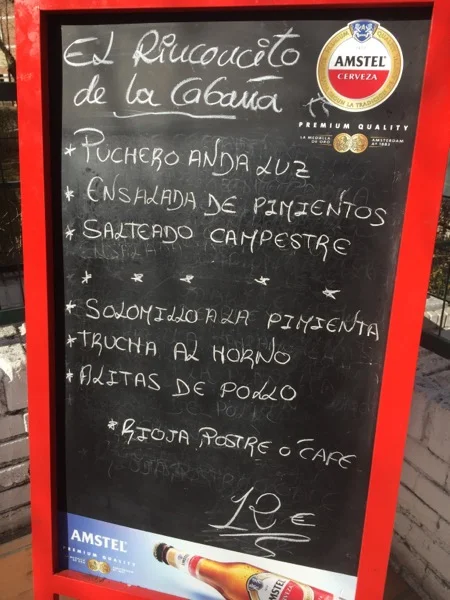 EL Rinconcito
de la Cabaña
AMSTEL
CERVEZA
SEGÚN LA TRADICIÓN
PREMIUM QUALITY
LA MEDALLA DE ORO
AMSTERDAM Aº 1883
* PUCHERO ANDALUZ
* ENSALADA DE PIMIENTOS
* SALTEADO CAMPESTRE
* * * * *
* SOLOMILLO A LA PIMIENTA
* TRUCHA AL HORNO
* ALITAS DE POLLO
* RIOJA, POSTRE O CAFE
12 €
AMSTEL
PREMIUM QUALITY
AMSTEL